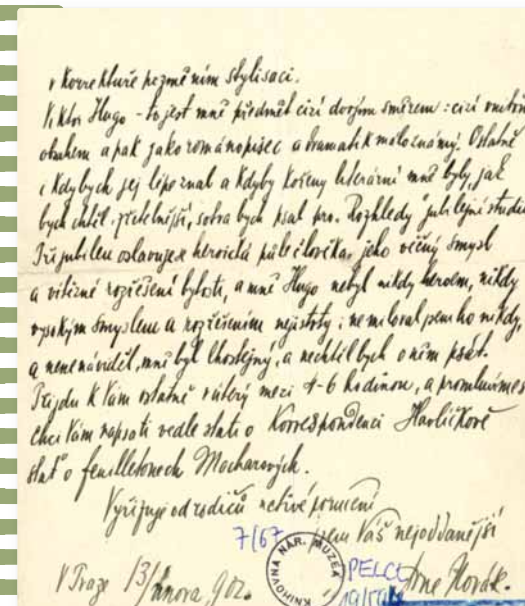 v Korrektuře nezměním stylisaci.
Viktor Hugo - to jest mně předmět cizí dvojím směrem: cizí vnitřním
obsahem a pak jako románopisec a dramatik málo známý. Ostatně
i kdybych jej lépe znal a kdyby kořeny literární mně byly, jak
bych chtěl, zřetelnější, sotva bych psal pro "Rozhledy" jubilejní studii.
Při jubileu oslavuje se heroická půle člověka, jeho věčný smysl
a vítězné rozřešení bytosti, a mně Hugo nebyl nikdy heroem, nikdy
vysokým smyslem a rozřešením nejistoty; nemiloval jsem ho nikdy,
a nenenáviděl, mně byl lhostejný, a nechtěl bych o něm psát.
Přijdu k Vám ostatně v úterý mezi 4-6 hodinou, a promluvíme si
chci Vám napsati vedle stati o Korrespondenci Havlíčkově
stať o feuilletonech Macharových.
Vyřizuje od rodičů uctivé poručení
7/67 jsem Váš nejoddanější
V Praze 13/února 902. Arne Novák.
KNIHOVNA NÁR. MUZEA
PELCL